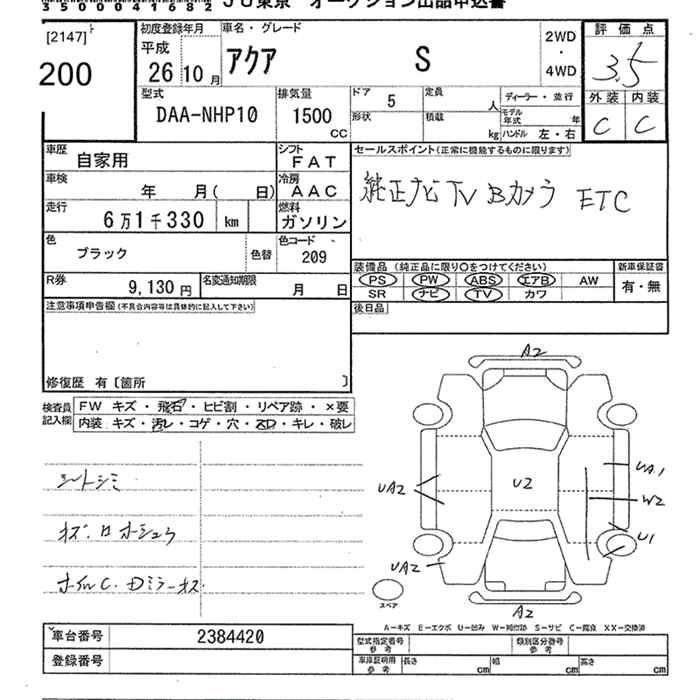 35000041682 JU東京 オークション出品申込書
[2147]
200
初度登録年月
平成
26 10 月
車名・グレード
アクア S
2WD
・
4WD
評価点
3.5
外装 内装
C C
型式
DAA-NHP10
排気量
1500
CC
ドア 5
定員 人
ディーラー・並行
形状
積載 kg
モデル年式 年
ハンドル 左・右
車歴 自家用
シフト FAT
車検 年 月( 日)
冷房 AAC
走行 6万1千330 km
燃料 ガソリン
色 ブラック
色替
色コード 209
R券 9,130円
名変通知期限 月 日
セールスポイント(正常に機能するものに限ります)
純正ナビ TV Bカメラ ETC
装備品(純正品に限り○をつけてください)
新車保証書
PS PW ABS エアB AW
SR ナビ TV カワ
有・無
後日品
注意事項申告欄(不具合内容等は具体的に記入して下さい)
修復歴 有〔箇所 〕
検査員記入欄
FW キズ・飛石・ヒビ割・リペア跡・×要
内装 キズ・汚レ・コゲ・穴・スレ・キレ・破レ
シートシミ
A2
UA2
U2
UA1
W2
U1
UA2
A2
スペア
A-キズ E-エクボ U-凹み W-補修跡 S-サビ C-腐食 XX-交換済
車台番号 2384420
登録番号
型式指定番号
参考
類別区分番号
参考
車庫証明用
参考
長さ cm
幅 cm
高さ cm